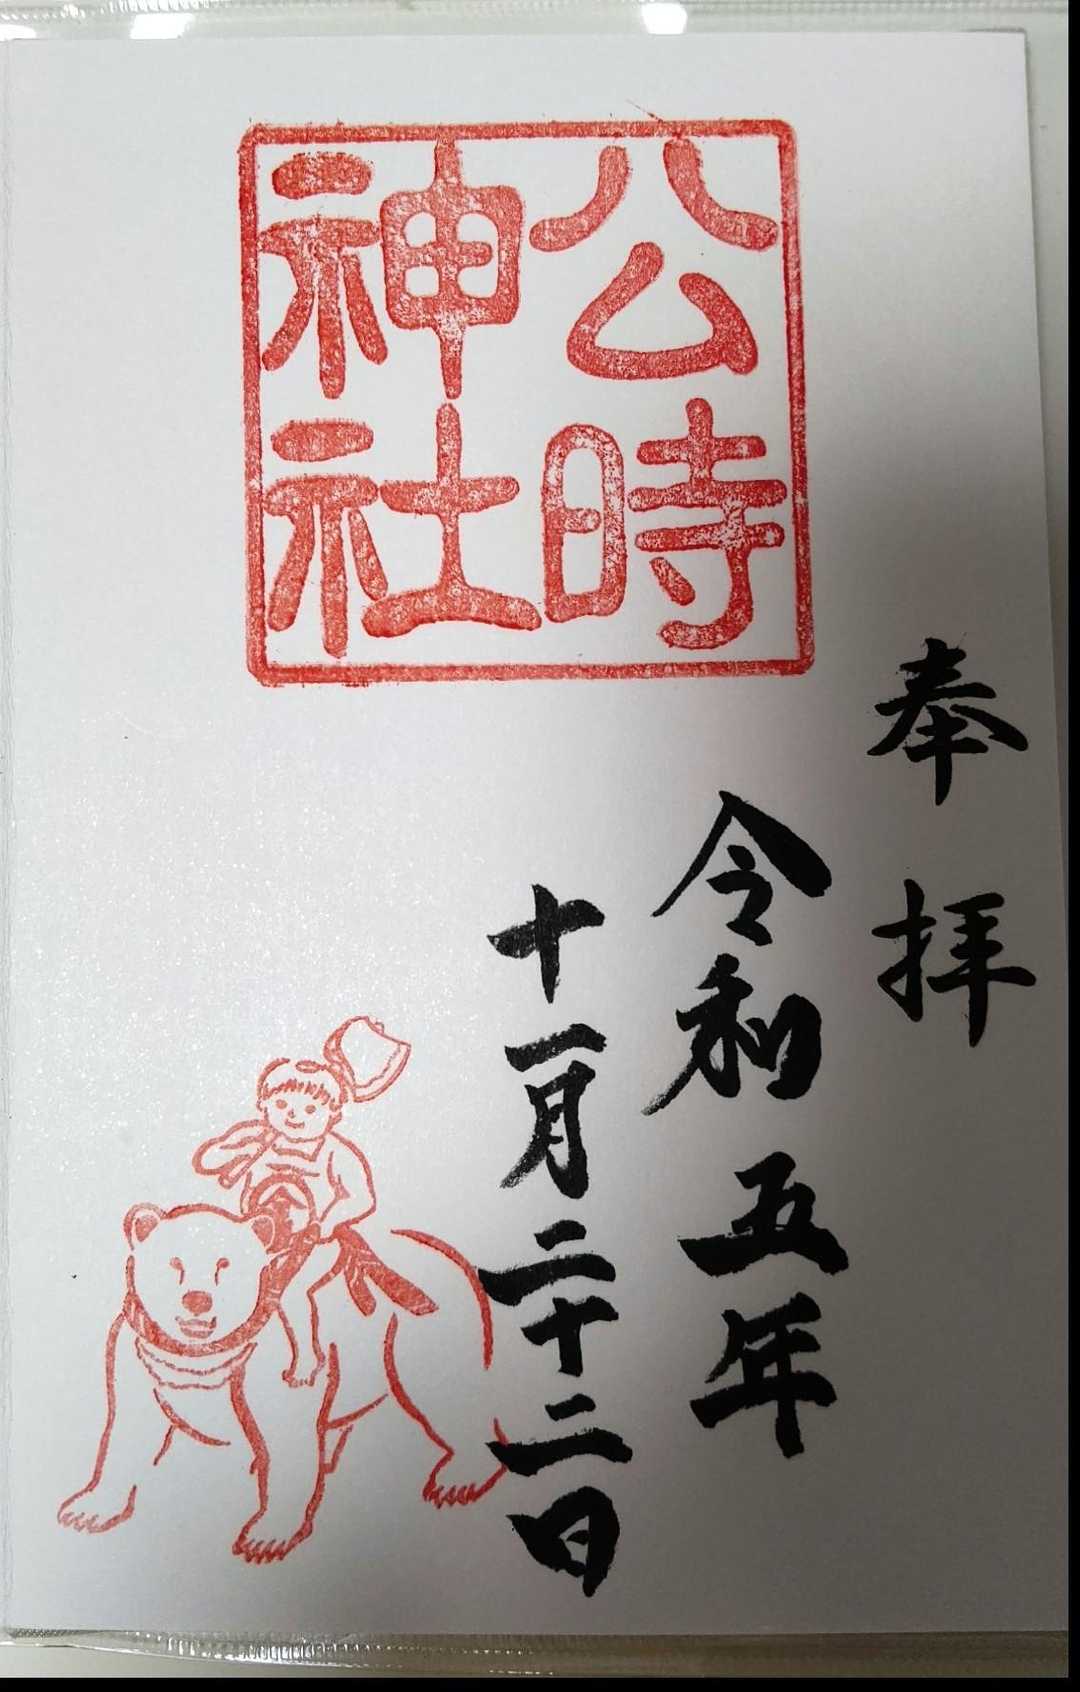 公時
神社
奉拝
令和五年
十一月二十二日